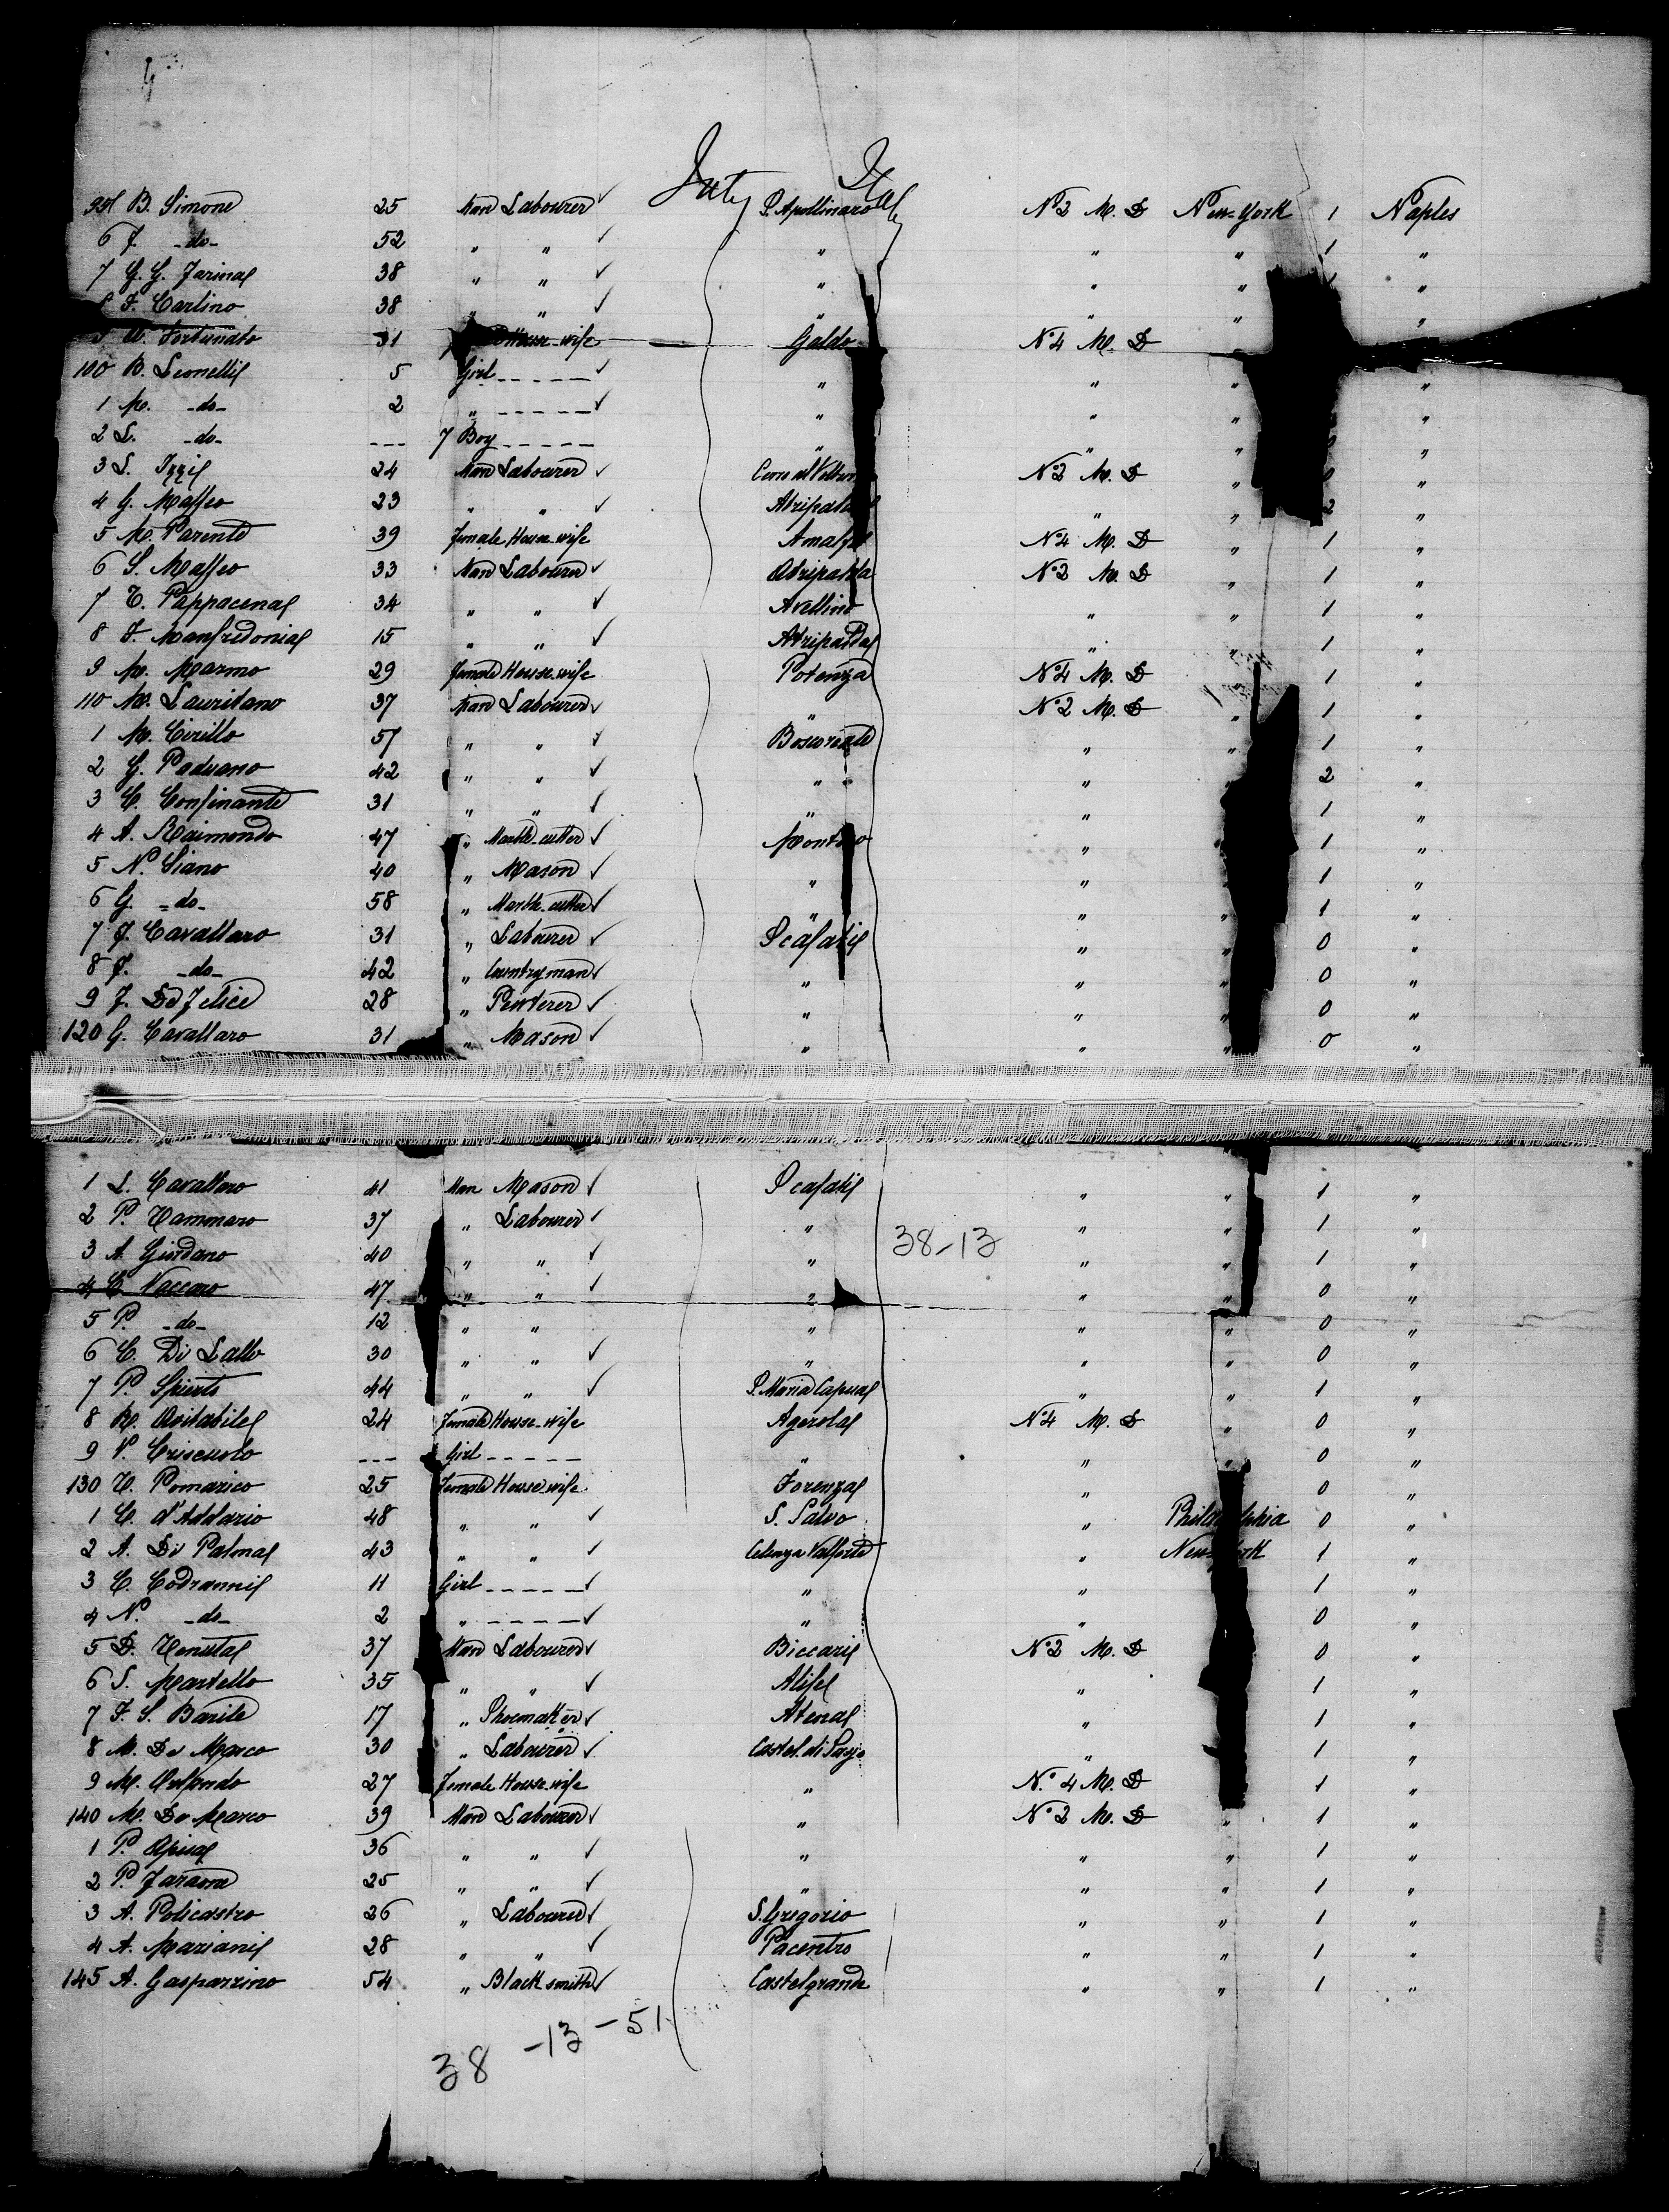 Italy
95 B. Simone 25 Man Labourer ✓ S. Apollinare No 2 M. D New-York 1 Naples
6 F. -do- 52 " " ✓ " " " 1 "
7 G. G. Farina 38 " " ✓ " " " "
8 F. Carlino 38 " " ✓ " " " "
Fortunato 31 House-wife Galdo No 4 M. D
100 B. Leonelli 5 Girl ----- ✓ " " " "
1 M. -do- 2 " ----- ✓ " " " "
2 L. -do- --- 7 Boy ----- " " " "
3 L. Izzi 24 Man Labourer ✓ Cerro al Volturno No 2 M. D " 0 "
4 G. Maffeo 23 " " ✓ Atripalda " " 2 "
5 M. Parente 39 female House-wife Amalfi No 4 M. D " 1 "
6 S. Maffeo 33 Man Labourer ✓ Atripalda No 2 M. D " 1 "
7 C. Pappacena 34 " " ✓ Avellino " " 1 "
8 F. Manfredonia 15 " " ✓ Atripalda " " 1 "
9 M. Marmo 29 female House-wife Potenza No 4 M. D " 1 "
110 M. Lauritano 37 Man Labourer ✓ " No 2 M. D " 1 "
1 M. Cirillo 57 " " ✓ Boscoreale " " 1 "
2 G. Paduano 42 " " ✓ " " 2 "
3 C. Confinante 31 " " ✓ " " 1 "
4 A. Raimondo 47 " Marble-cutter ✓ " 1 "
5 N. Siano 40 " Mason ✓ " " 1 "
6 G. -do- 58 " Marble-cutter ✓ " " " 1 "
7 F. Cavallaro 31 " Labourer ✓ Scafati " " 0 "
8 F. -do- 42 " Countryman ✓ " " " 0 "
9 F. De Felice 28 " Pewterer ✓ " " " 0 "
120 G. Cavallaro 31 " Mason ✓ " " " 0 "
1 L. Cavallaro 41 Man Mason ✓ Scafati " " 1 "
2 P. Tammaro 37 " Labourer ✓ " " " 1 "
38-13
3 A. Giordano 40 " " ✓ " " " 1 "
4 C. Vaccaro 47 " " ✓ " " " 0 "
5 P. -do- 12 " " " " " 0 "
6 C. Di Lallo 30 " " ✓ " " " 0 "
7 P. Spierto 44 " " ✓ S. Maria Capua " " 1 "
8 M. Avitabile 24 female House-wife Agerola No 4 M. D " 0 "
9 V. Criscuolo --- Girl ----- " " " 0 "
130 C. Pomarico 25 female House-wife Forenza " 0 "
1 C. d'Addario 48 " " ✓ S. Salvo " Philadelphia 0 "
2 A. Di Palma 43 " " ✓ Celenza Valforte " New-York 1 "
3 C. Codianni 11 Girl ----- ✓ " " 1 "
4 N. -do- 2 " ----- ✓ " " 0 "
5 D. Tenuta 37 Man Labourer ✓ Biccari No 2 M. D 0 "
6 S. Martello 35 " " ✓ Alife " 1 "
7 F. S. Barile 17 " Shoemaker ✓ Atena " 1 "
8 M. De Marco 30 " Labourer ✓ Castel di Sasso " 1 "
9 M. 27 female House-wife " No. 4 M. D 1 "
140 M. De Marco 39 Man Labourer ✓ " No 2 M. D " 1 "
1 P. 36 " " ✓ " " " 1 "
2 P. Faraone 25 " " ✓ " " " 1 "
3 A. Policastro 26 " Labourer ✓ S. Gregorio " " 1 "
4 A. Mariani 28 " " ✓ Pacentro " " 1 "
145 A. Gasparrino 54 " Blacksmith ✓ Castelgrande " " 1 "
38 -13 -51